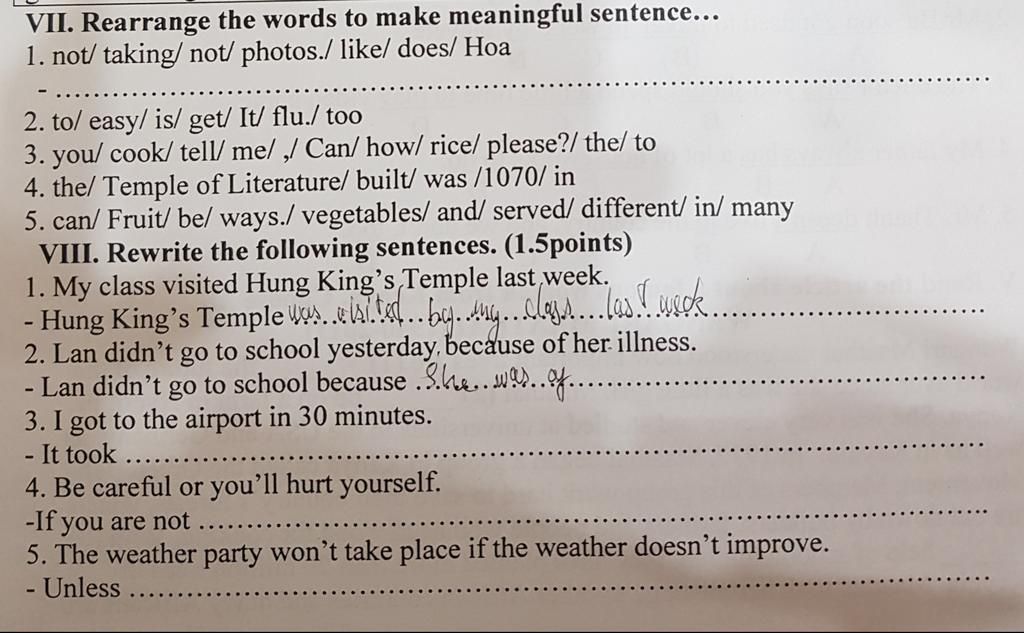 VII. Rearrange the words to make meaningful sentence...
1. not/ taking/ not/ photos./ like/ does/ Hoa
- ........................................................................................
2. to/ easy/ is/ get/ It/ flu./ too
3. you/ cook/ tell/ me/ ,/ Can/ how/ rice/ please?/ the/ to
4. the/ Temple of Literature/ built/ was /1070/ in
5. can/ Fruit/ be/ ways./ vegetables/ and/ served/ different/ in/ many
VIII. Rewrite the following sentences. (1.5points)
1. My class visited Hung King's Temple last week.
- Hung King's Temple was visited by my class last week
2. Lan didn't go to school yesterday because of her illness.
- Lan didn't go to school because She was of
3. I got to the airport in 30 minutes.
- It took ........................................................................................
4. Be careful or you'll hurt yourself.
-If you are not ........................................................................................
5. The weather party won't take place if the weather doesn't improve.
- Unless ........................................................................................